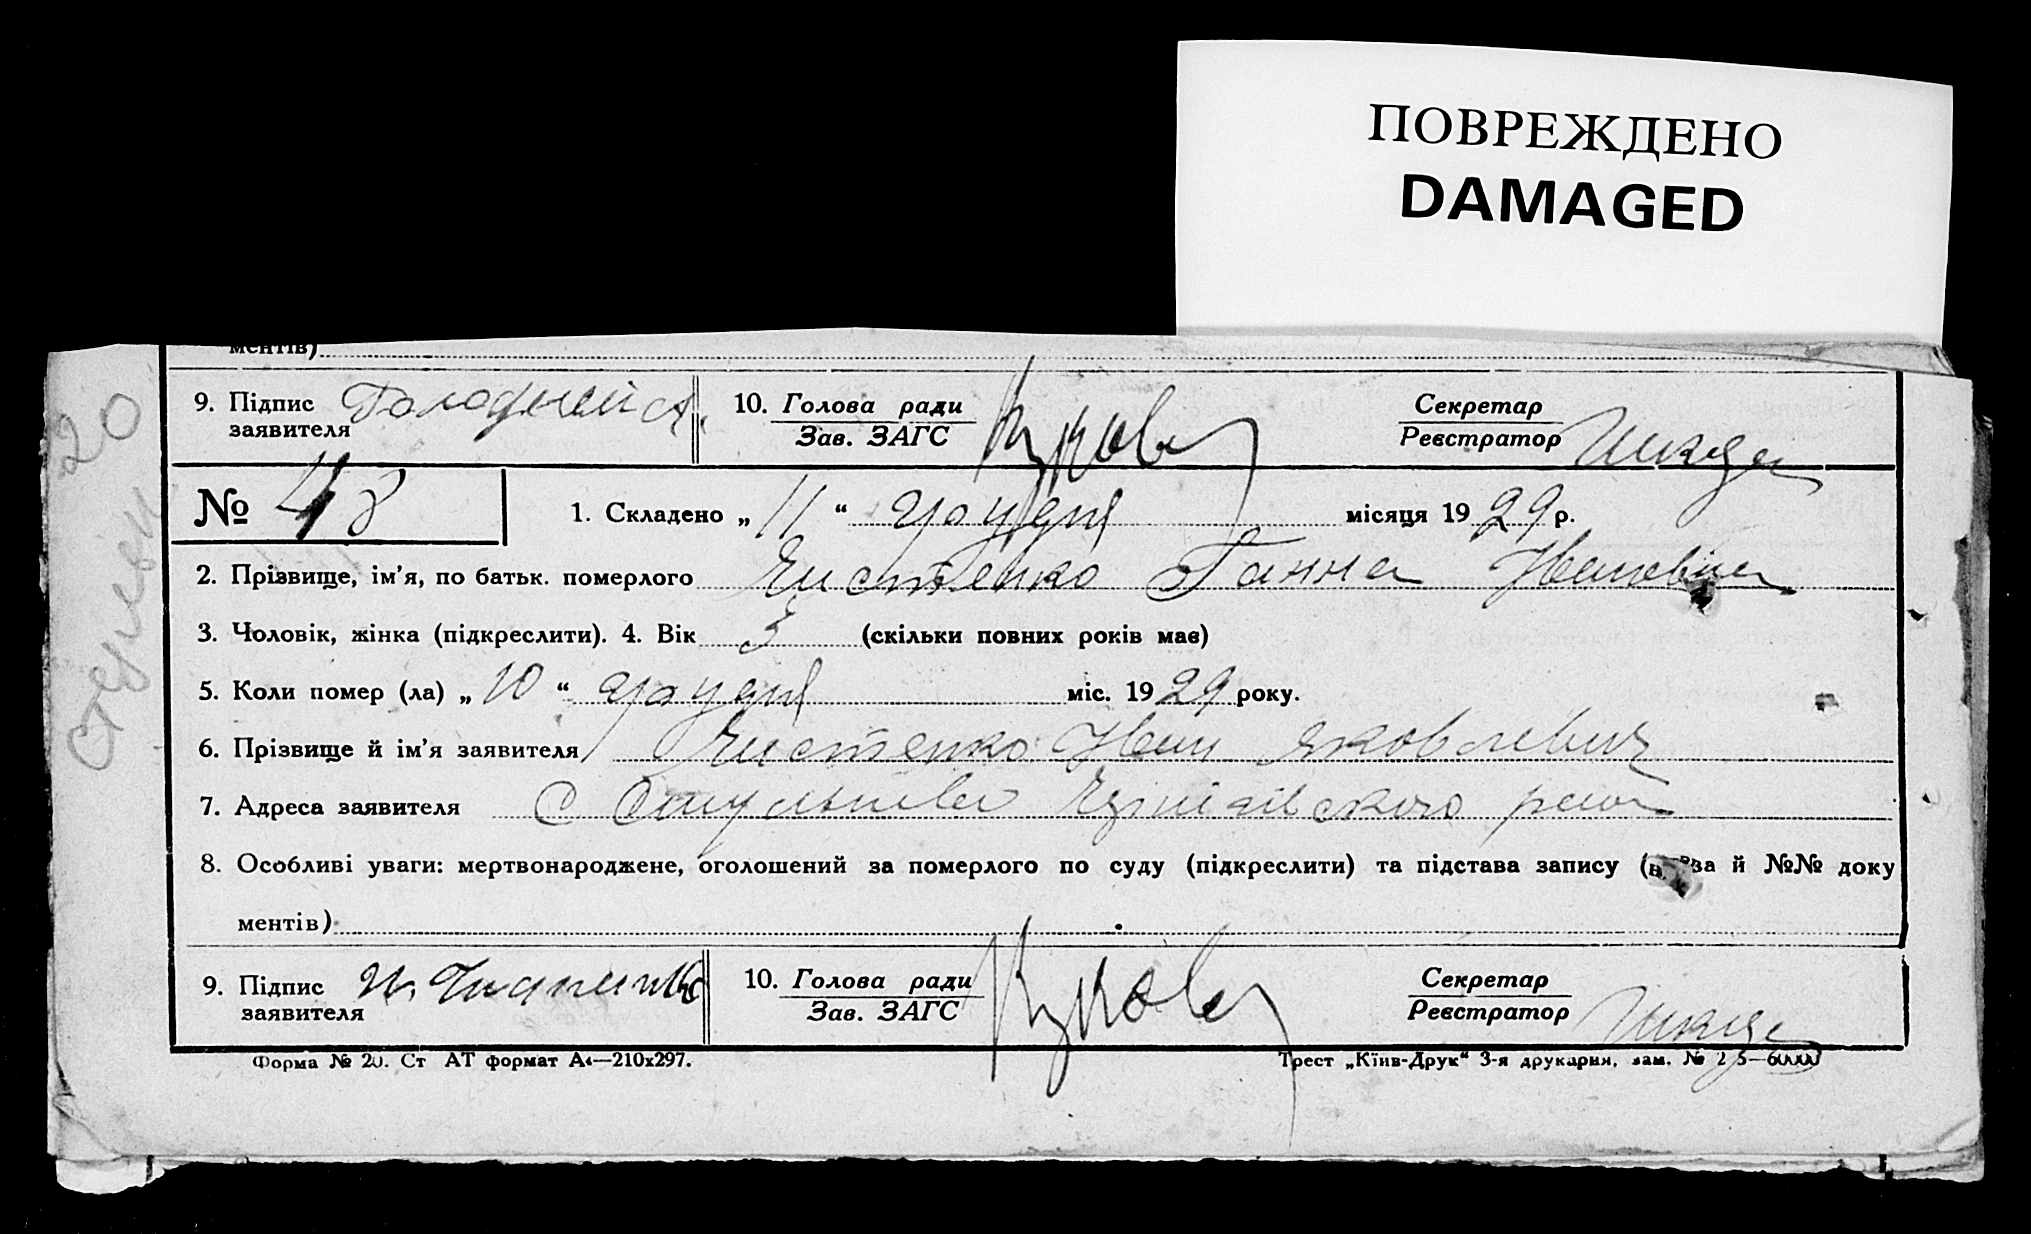 ПОВРЕЖДЕНО
DAMAGED
ментів)
9. Підпис заявителя Голодний А. 10. Голова ради Зав. ЗАГС Секретар Реєстратор
№ 48 1. Складено „ 11 “ грудня місяця 1929 р.
2. Прізвище, ім’я, по батьк. померлого Чистенко Ганна Іванівна
3. Чоловік, жінка (підкреслити). 4. Вік 3 (скільки повних років має)
5. Коли помер (ла) „ 10 “ грудня міс. 1929 року.
6. Прізвище й ім’я заявителя Чистенко Иван Яковлевич
7. Адреса заявителя с району
8. Особливі уваги: мертвонароджене, оголошений за померлого по суду (підкреслити) та підстава запису й №№ доку
ментів)
9. Підпис заявителя И. 10. Голова ради Зав. ЗАГС Секретар Реєстратор
Форма № 20. Ст АТ формат А4—210х297. Трест „Київ-Друк“ 3-я друкарня, зам. №
20